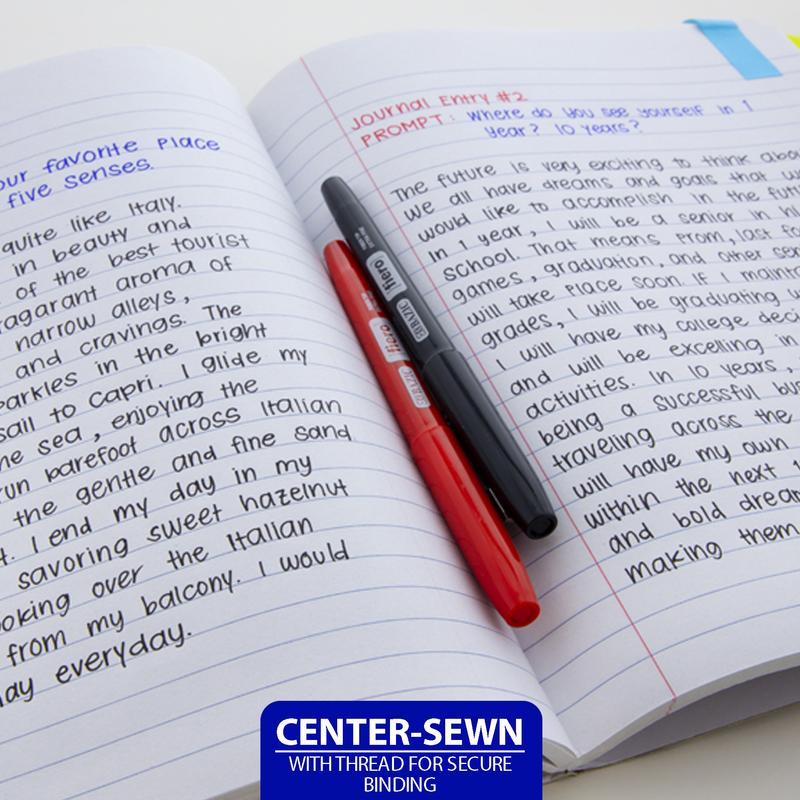 our favorite Place
five senses.
quite like Italy.
in beauty and
of the best tourist
ragarant aroma of
narrow alleys,
and cravings. The
parkles in the bright
sail to Capri. I glide my
he sea, enjoying the
run barefoot across Italian
the gentle and fine sand
t. I end my day in my
savoring sweet hazelnut
ooking over the Italian
from my balcony. I would
day everyday.
Journal Entry #2
PROMPT: Where do you see yourself in 1
year? 10 years?
The future is very exciting to think abou
we all have dreams and goals that w
would like to accomplish in the futu
In 1 year, I will be a senior in hi
school. That means Prom, last fo
games, graduation, and other sen
will take place soon. If I maintai
grades, I will be graduating w
I will have my college deci
and will be excelling in
activities. In 10 years,
being a successful bus
traveling across the
will have my own
within the next 1
and bold dream
making them
fiero
BAZIC
fiero
BAZIC
CENTER-SEWN
WITH THREAD FOR SECURE
BINDING